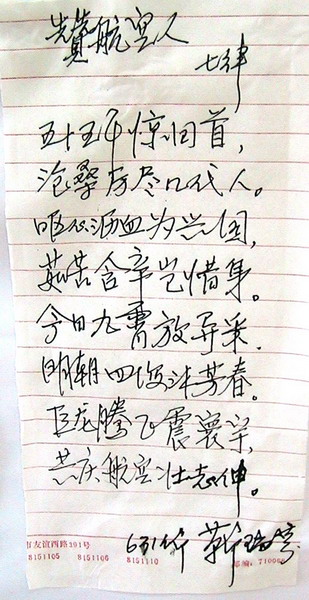 赞航空人
七律
五十五年惊回首,
沧桑历尽几代人。
呕心沥血为兴国,
茹苦含辛岂惜身。
今日九霄放异采.
明朝四海沐芳春。
巨龙腾飞震寰宇,
共庆航空壮志伸。
631所
市友谊西路391号
8151105 8151106 8151110
邮编: 7100